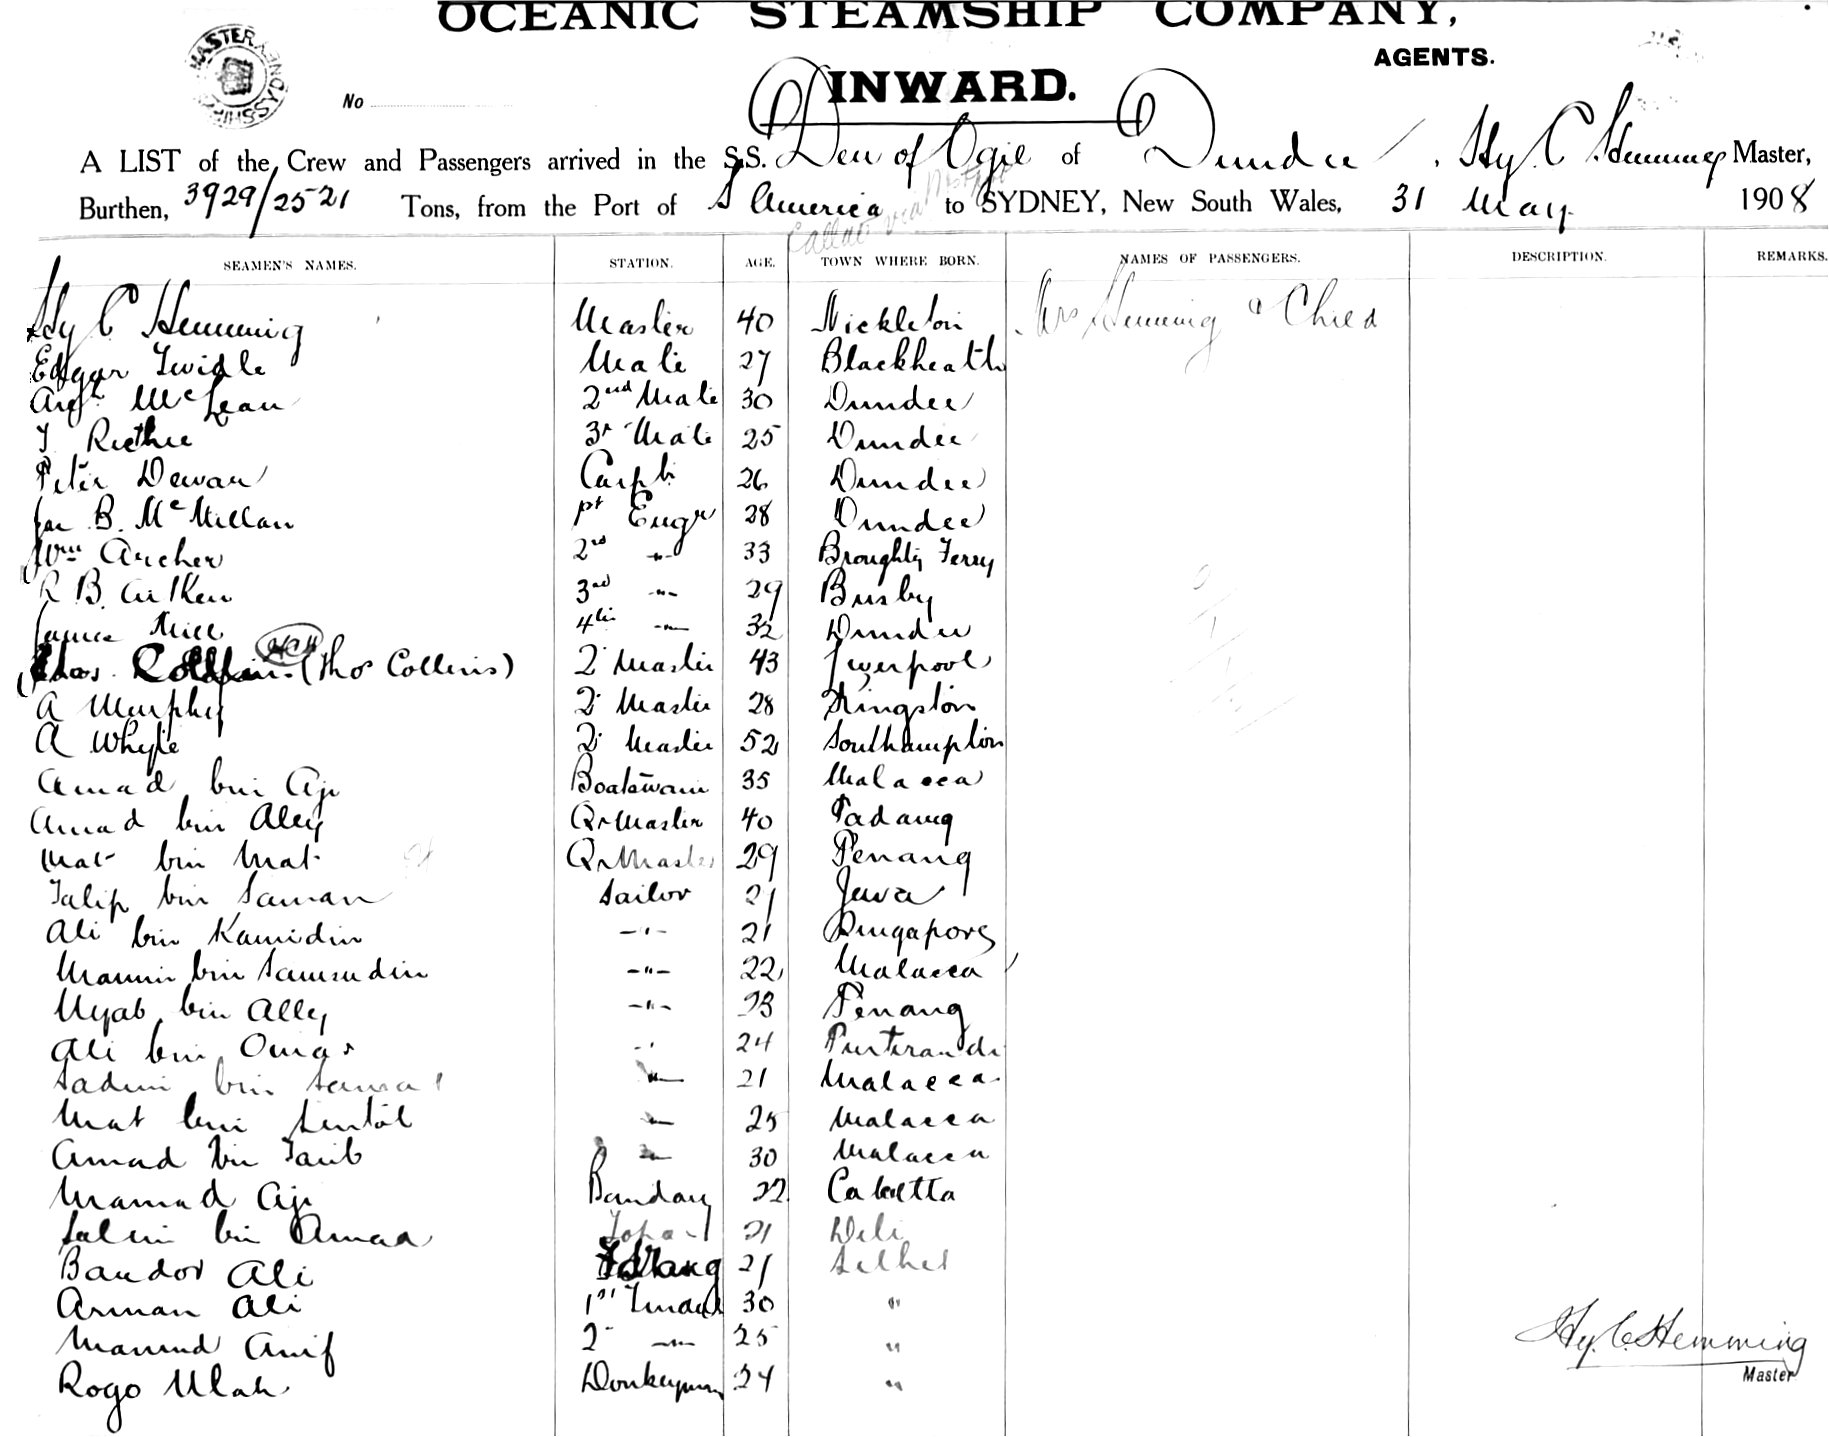 OCEANIC STEAMSHIP COMPANY,
AGENTS.
INWARD.
No
A LIST of the Crew and Passengers arrived in the S.S. Den of Ogil of Dundee, Hy. C Hemming Master,
Burthen, 3929/2521 Tons, from the Port of S America to SYDNEY, New South Wales, 31 May 1908
Callao via
SEAMEN'S NAMES. STATION. AGE. TOWN WHERE BORN. NAMES OF PASSENGERS. DESCRIPTION. REMARKS.
Hy C Hemming Master 40 Mickleton Mrs Hemming & Child
Edgar Twidle Mate 27 Blackheath
Archd McLean 2nd Mate 30 Dundee
T Ritchie 3r Mate 25 Dundee
Peter Dewar Carptr 26 Dundee
Jas B. McMillan 1st Engr 28 Dundee
Wm Archer 2nd -"- 33 Broughty Ferry
R B. Aitken 3rd -"- 29 Busby
James Mill 4th -"- 32 Dundee
Thos. (Thos Collins) 2r Master 43 Liverpool
A Murphy 2r Master 28 Kingston
A Whyte 2r Master 52 Southampton
Amad bin Aji Boatswain 35 Malacca
Amad bin Alley Qr Master 40 Padang
Mat bin Mat Qr Master 29 Penang
Talip bin Saman Sailor 21 Java
Ali bin Kamidin -"- 21 Singapore
Mamin bin Samsudin -"- 22 Malacca
Ujab bin Alley -"- 23 Penang
Ali bin Omar " 24
Sadim bin Samat -"- 21 Malacca
Mat bin Sentol -"- 25 Malacca
Amad bin Taib -"- 30 Malacca
Mamad Aji Bandary 22 Calcutta
Salim bin Amad Topas 21 Deli
Bandor Ali 21 Silhet
Arman Ali 1st Tindal 30 "
Mamud Arif 2 -"- 25 "
Rogo Ulah Donkeyman 24 "
Hy. C. Hemming
Master